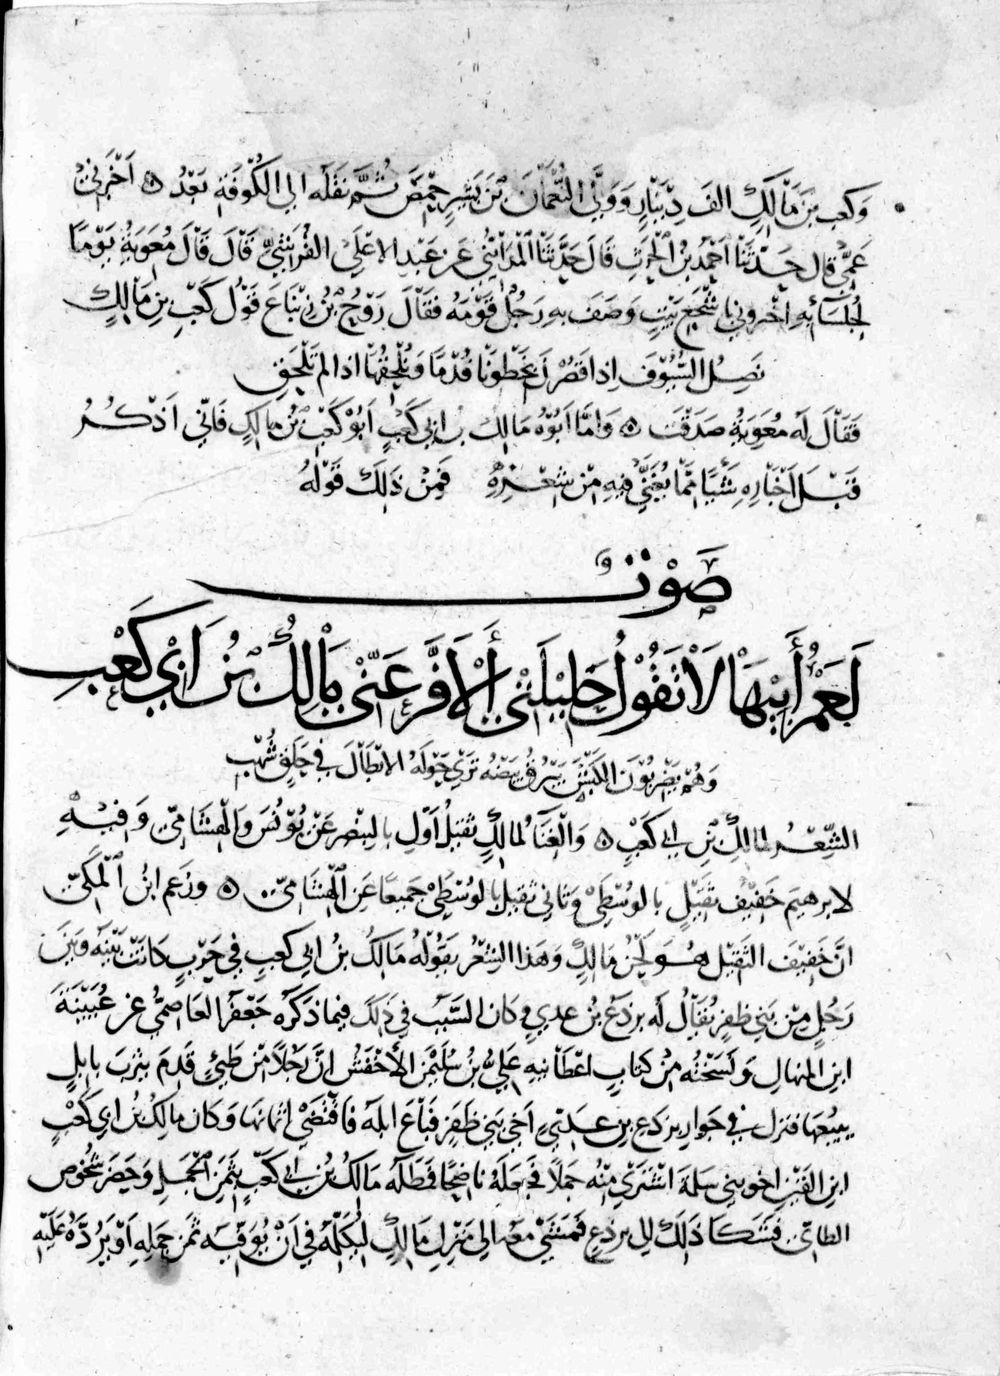 وكعب بن مالك الف دينار وولى النعمان بن بشير حمص ثم نقله الى الكوفة بعد ۵ اخبرنى
عمى قال حدثنا احمد بن الحرث قال حدثنا المدائنى عن عبد الاعلى القرشى قال قال معوية يوما
لجلسائه اخبرونى باشجع بيت وصف به رجل قومه فقال روح بن زنباع قول كعب بن مالك
نصل السيوف اذا قصرن بخطونا قدما ونلحقها اذا لم تلحق
فقال له معوية صدقت ۵ واما ابوه مالك بن ابى كعب ابو كعب بن مالك فانى اذكر
قبل اخباره شيا مما يغنى فيه من شعره فمن ذلك قوله
صوت
لعمر أبيها لا تقول حليلتى ألا فر عنى مالك بن ابى كعب
وهم يضربون الكبش يبرق بيضه ترى حوله الابطال فى حلق شهب
الشعر لمالك بن ابى كعب ۵ والغنا لمالك ثقيل اول بالبنصر عن يونس والهشامى وفيه
لابرهيم خفيف ثقيل بالوسطى وثانى ثقيل بالوسطى جميعا عن الهشامى ۵ وزعم ابن المكى
ان خفيف الثقيل هو لحن مالك وهذا الشعر يقوله مالك بن ابى كعب فى حرب كانت بينه وبين
رجل من بنى ظفر يقال له برذع بن عدى وكان السبب فى ذلك فيما ذكره جعفر العاصمى عن عيينة
ابن المنهال ونسخته من كتاب اعطانيه على بن سليمن الأخفش ان رجلا من طيئ قدم يثرب بابل
يبيعها فنزل فى جوار برذع بن عدى اخى بنى ظفر فباع ابله فاقتضى اثمانها وكان مالك بن ابى كعب
ابن القين اخو بنى سلمة اشترى منه جملا فجعله ناضحا فمطله مالك بن ابى كعب بثمن الجمل وحضر شخوص
الطائى فشكا ذلك الى برذع فمشى معه الى منزل مالك ليكلمه فى ان يوفيه ثمن جمله او يرده عليه